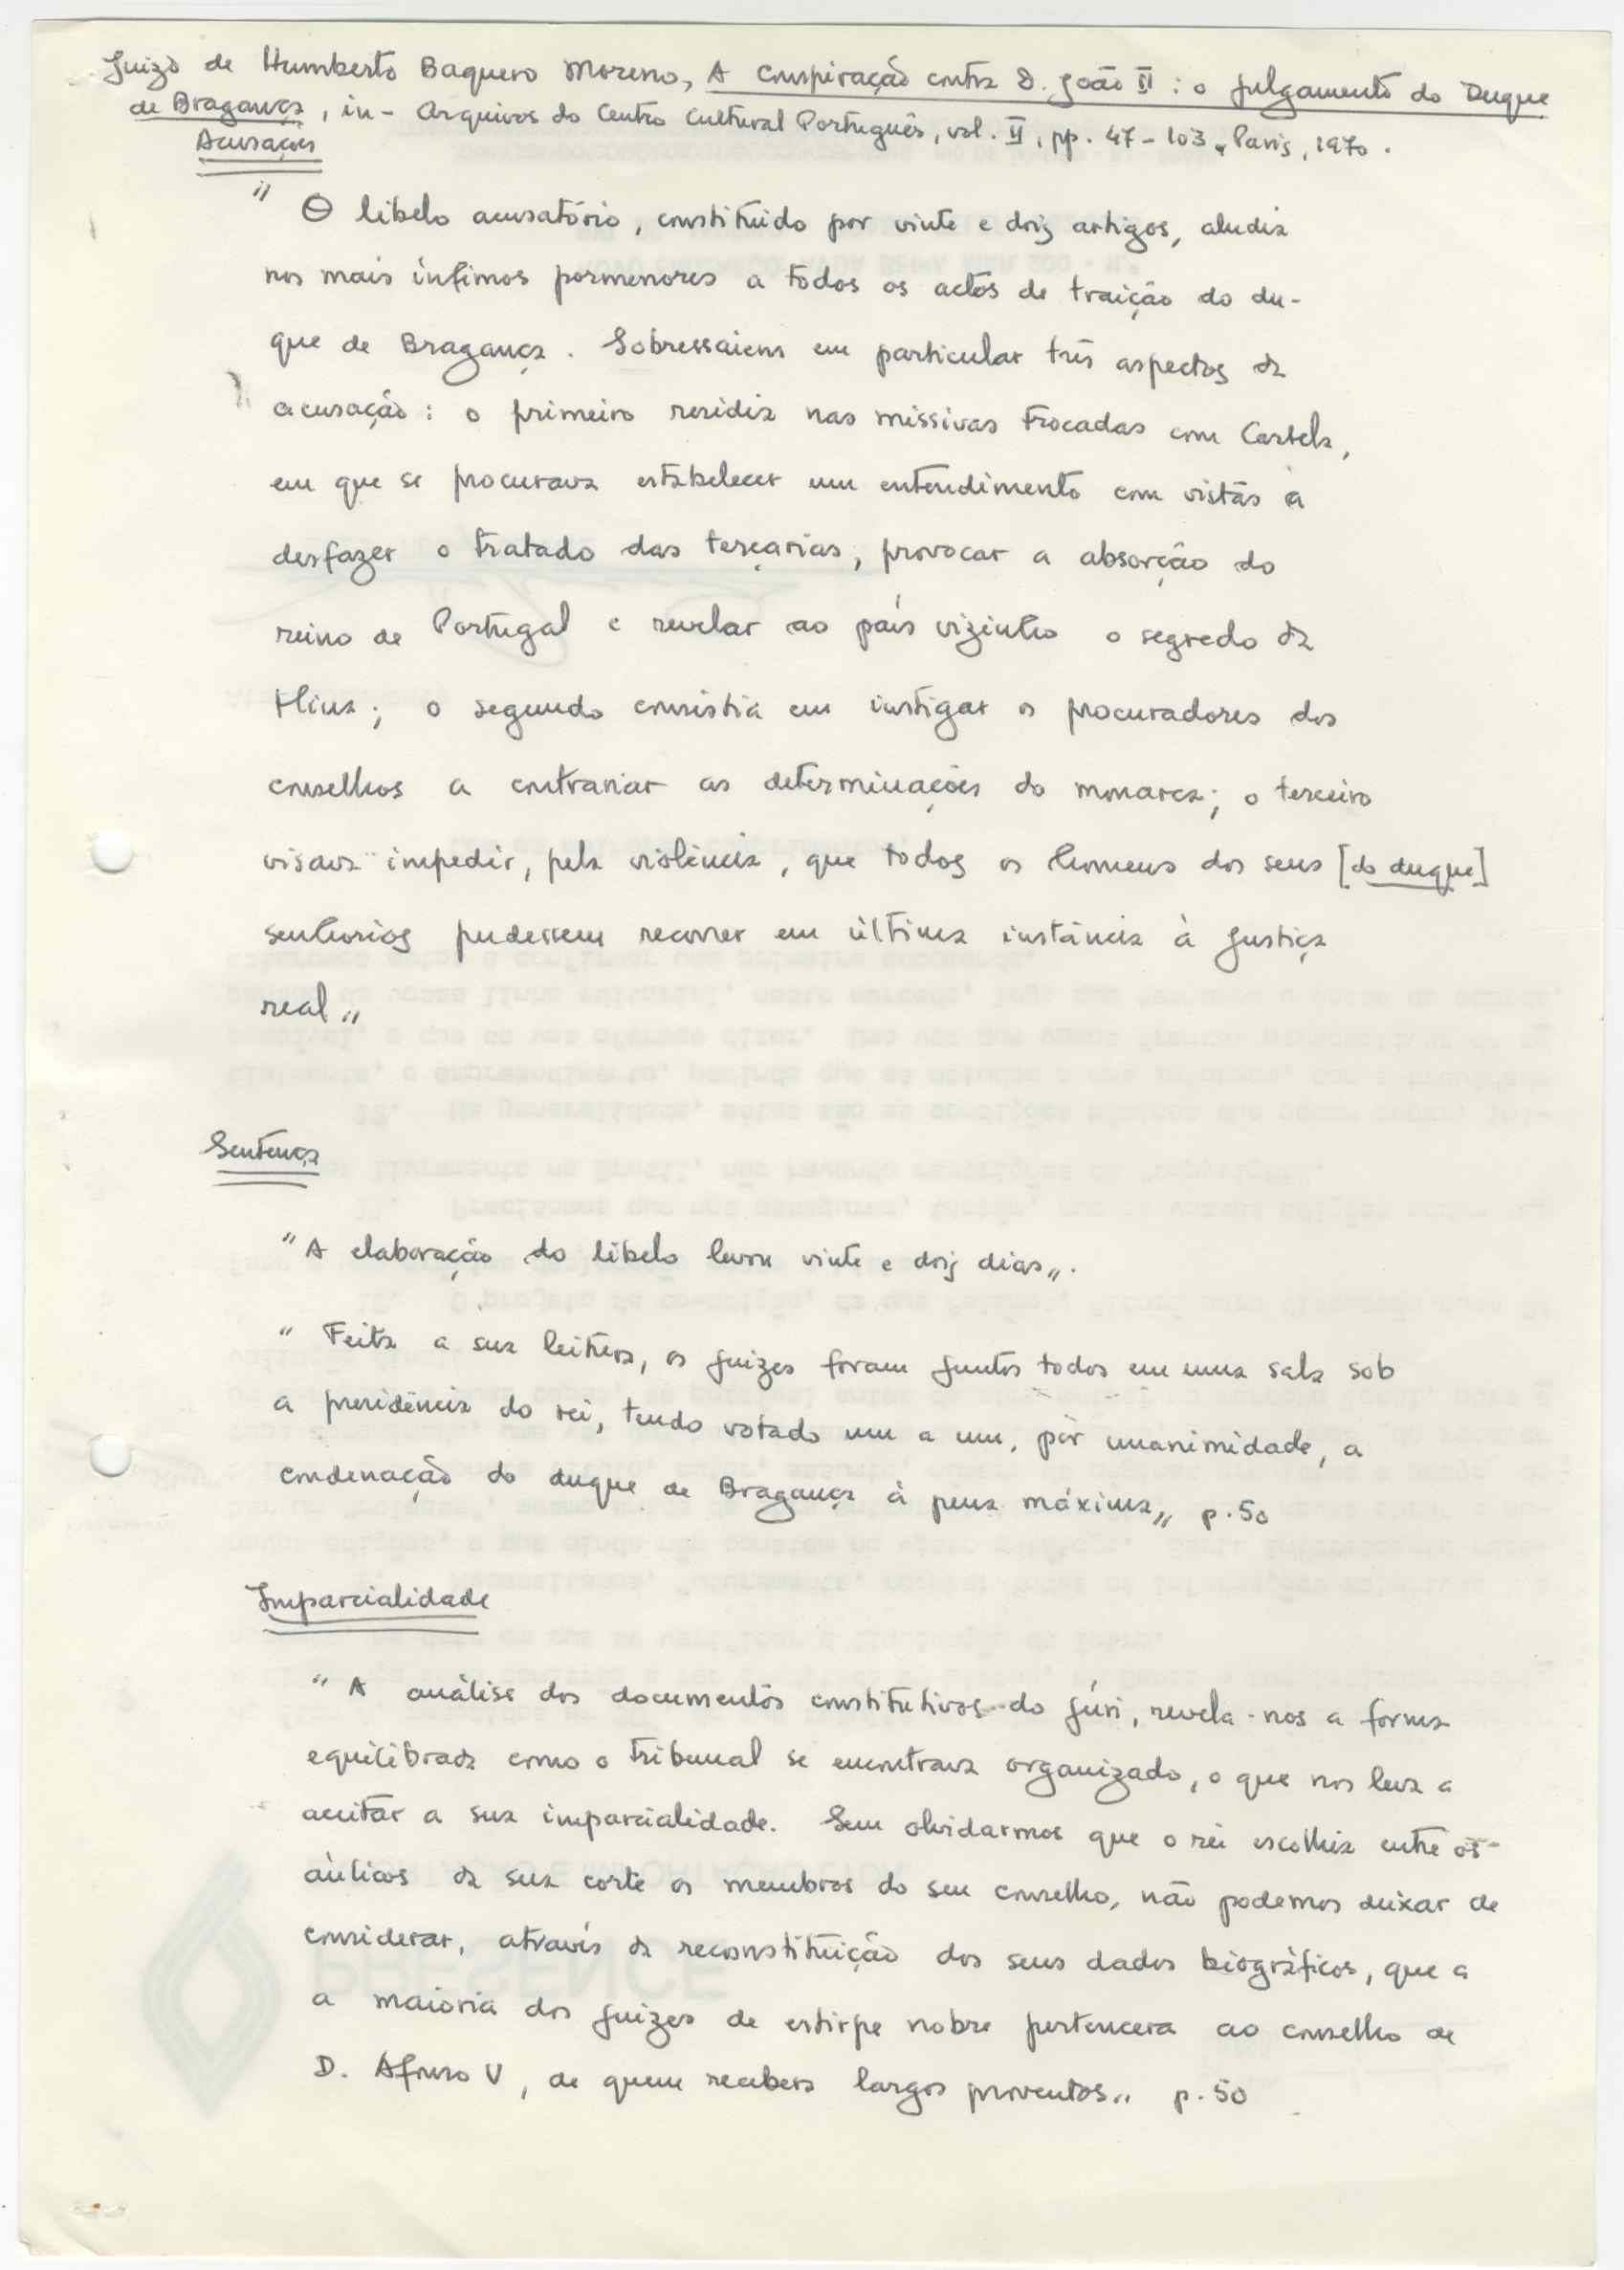 Juizo de Humberto Baquero Moreno, A Conspiração contra D. João II : o julgamento do Duque
de Bragança, in - Arquivos do Centro Cultural Português, vol. II, pp. 47 - 103, Paris, 1970.
Acusações
" O libelo acusatório, constituído por vinte e dois artigos, aludia
nos mais ínfimos pormenores a todos os actos de traição do du-
que de Bragança. Sobressaiem em particular três aspectos da
acusação: o primeiro residia nas missivas trocadas com Castela,
em que se procurava estabelecer um entendimento com vistas a
desfazer o tratado das terçarias, provocar a absorção do
reino de Portugal e revelar ao país vizinho o segredo da
Mina; o segundo consistia em instigar os procuradores dos
conselhos a contrariar as determinações do monarca; o terceiro
visava impedir, pela violência, que todos os homens dos seus [do duque]
senhorios pudessem recorrer em última instância à justiça
real"
Sentença
"A elaboração do libelo levou vinte e dois dias".
" Feita a sua leitura, os juizes foram juntos todos em uma sala sob
a presidência do rei, tendo votado um a um, por unanimidade, a
condenação do duque de Bragança à pena máxima" p. 50
Imparcialidade
" A análise dos documentos constitutivos do júri, revela-nos a forma
equilibrada como o tribunal se encontrava organizado, o que nos leva a
aceitar a sua imparcialidade. Sem olvidarmos que o rei escolhia entre os
áulicos da sua corte os membros do seu conselho, não podemos deixar de
considerar, através da reconstituição dos seus dados biográficos, que a
a maioria dos juizes de estirpe nobre pertencera ao conselho de
D. Afonso V, de quem recebera largos proventos" p. 50